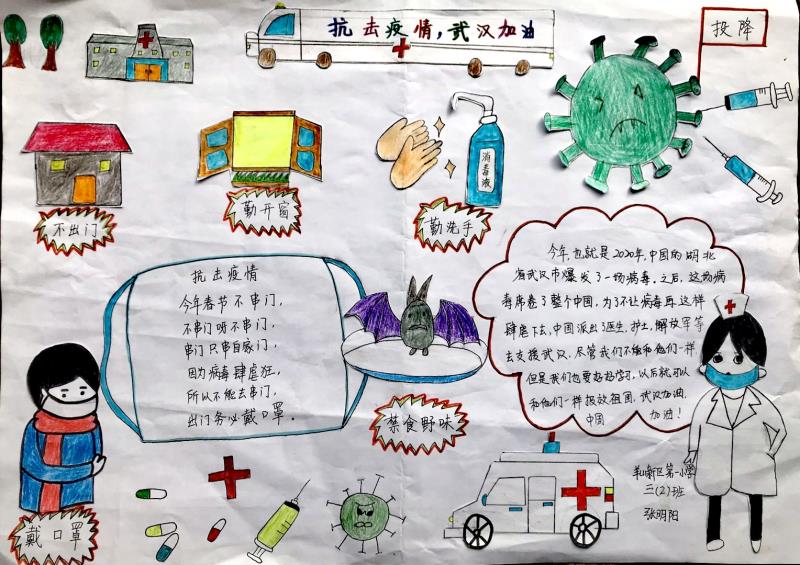 抗去疫情，武汉加油
投降
消毒液
不出门
勤开窗
勤洗手
抗去疫情
今年春节不串门，
不串门呀不串门，
串门只串自家门，
因为病毒肆虐狂，
所以不能去串门，
出门务必戴口罩。
今年，也就是2020年，中国的湖北
省武汉市爆发了一场病毒。之后，这场病
毒席卷了整个中国，为了不让病毒再这样
肆虐下去，中国派出了医生、护士、解放军等
去支援武汉，尽管我们不能和他们一样，
但是我们也要好好学习，以后就可以
和他们一样报效祖国，武汉加油，
中国加油！
禁食野味
戴口罩
羊山新区第一小学
三(2)班
张明阳